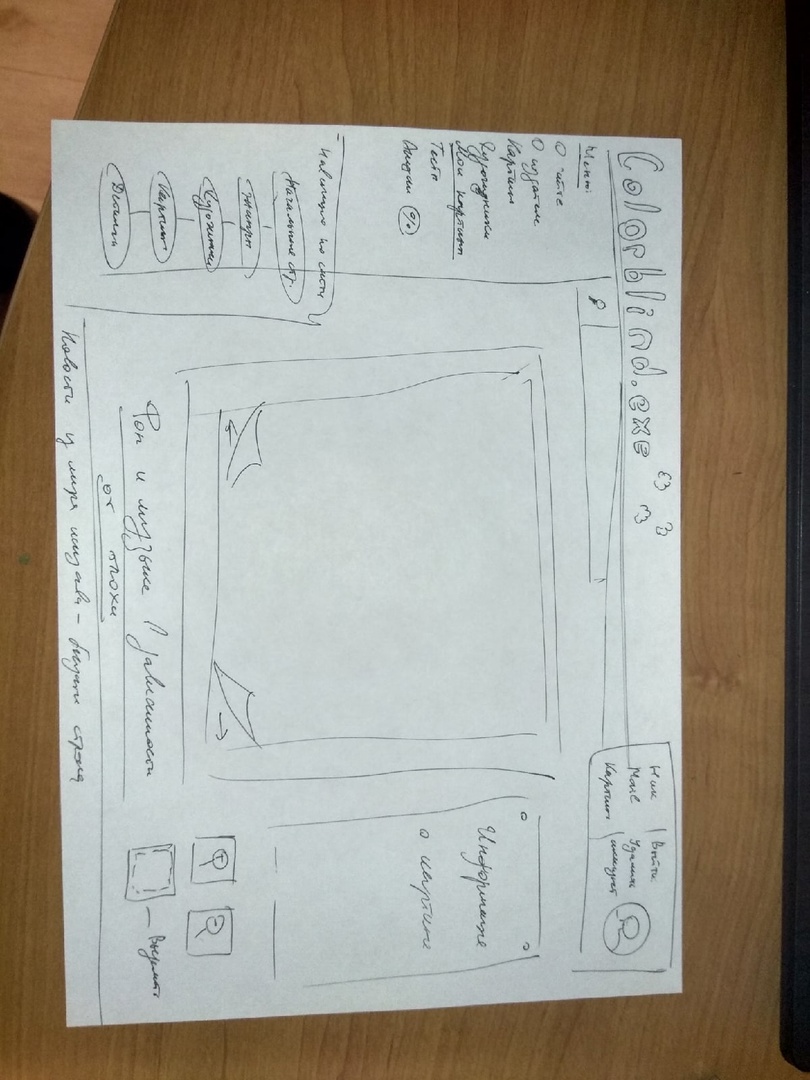 Colorblind.exe
Ник
Mail
Картины
Выйти
Удалить
аккаунт
Меню:
О сайте
О издателе
Картины
Художники
Мои картины
Тесты
Акции %
Навигация по сайту
Начальная стр.
Жанры
Художники
Картины
Детали
Информация
о картине
Выделить
Фон и музыка в зависимости
от эпохи
Новости из мира искусства – бегущая строка